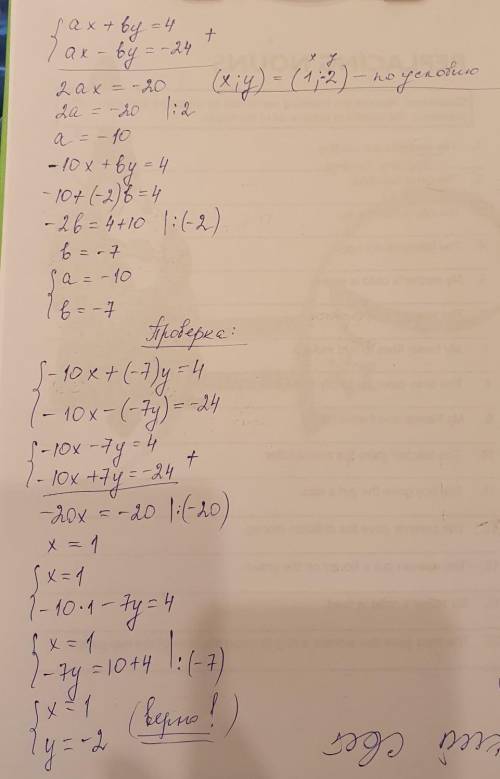 {ax + by = 4
{ax - by = -24 +
2ax = -20
(x;y) = (1;-2) - по условию
x y
2a = -20 |:2
a = -10
-10x + by = 4
-10 + (-2)b = 4
-2b = 4+10 |:(-2)
b = -7
{a = -10
{b = -7
Проверка:
{-10x + (-7)y = 4
{-10x - (-7y) = -24
{-10x - 7y = 4
{-10x + 7y = -24 +
-20x = -20 |:(-20)
x = 1
{x = 1
{-10·1 - 7y = 4
{x = 1
{-7y = 10+4 |:(-7)
{x = 1
{y = -2 (верно!)
свет